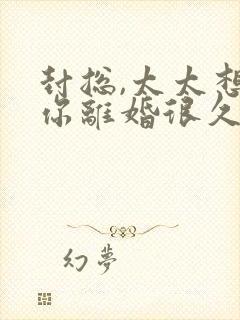 封总,太太想
你離婚很久
幻夢